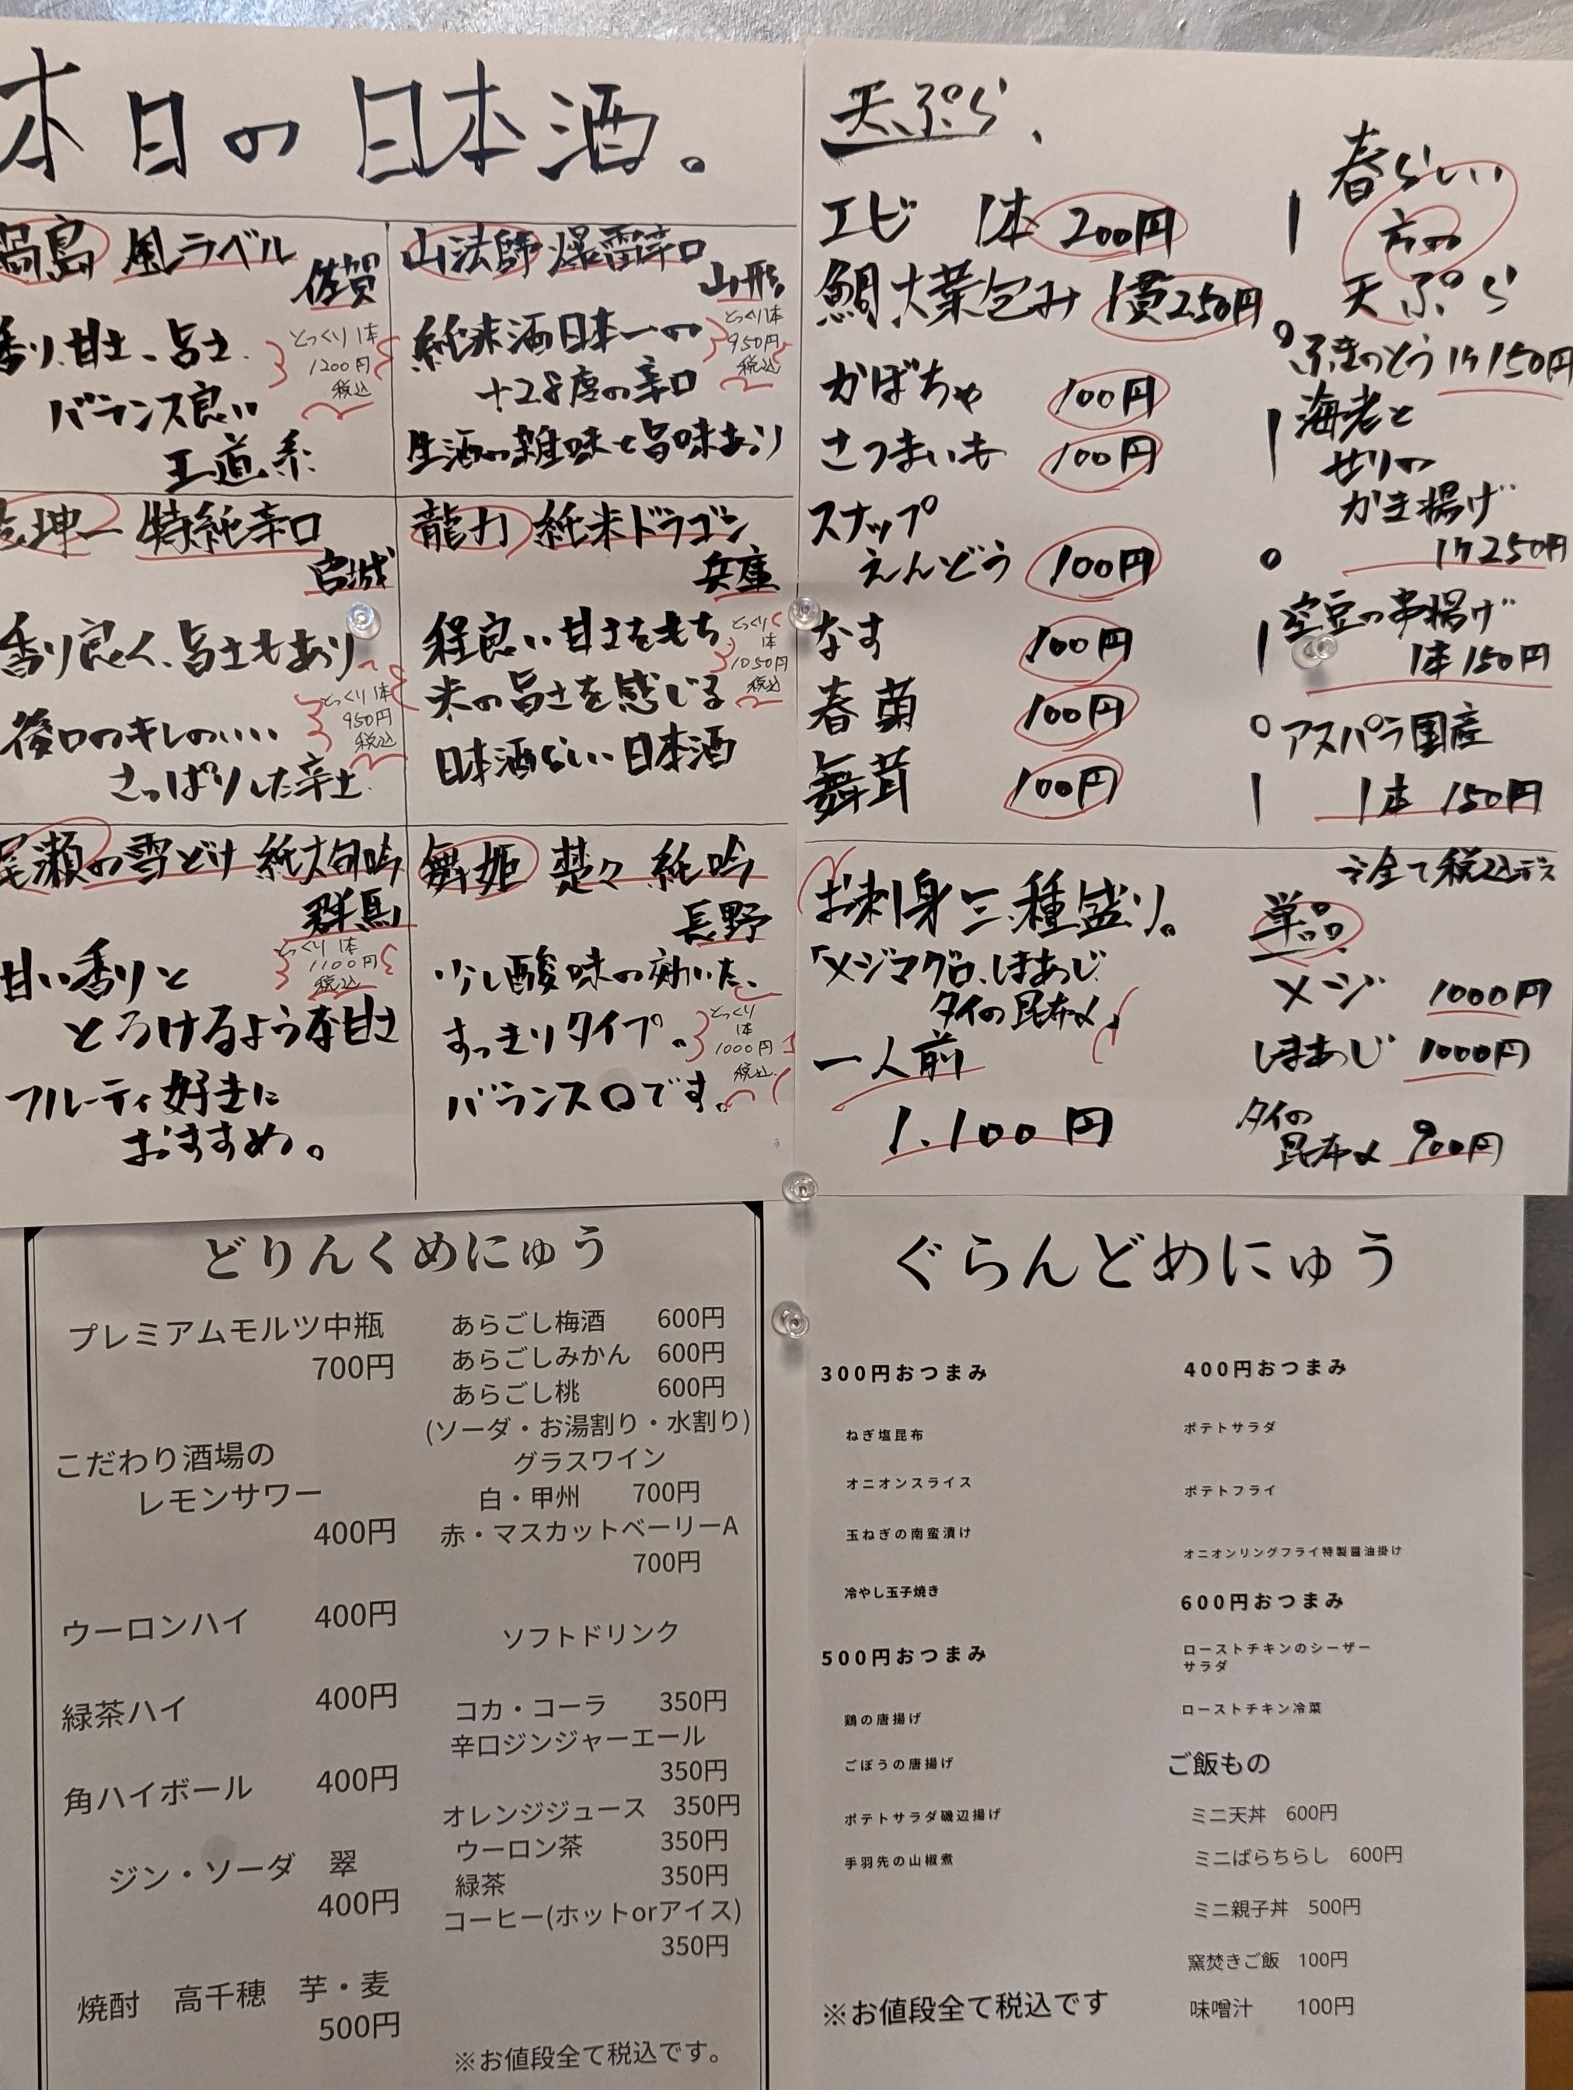 本日の日本酒。
鍋島 風ラベル
佐賀
香り、甘さ、旨さ、
バランス良い
王道系
とっくり1本
1200円
税込
山法師 爆雷辛口
山形
純米酒日本一の
+28度の辛口
生酒の雑味と旨味あり
とっくり1本
950円
税込
乾坤一 特純辛口
宮城
香り良く、旨さもあり
後口のキレのいい
さっぱりした辛さ
とっくり1本
950円
税込
龍力 純米ドラゴン
兵庫
程良い甘さをもち
米の旨さを感じる
日本酒らしい日本酒
とっくり
1本
1050円
税込
尾瀬の雪どけ 純大吟
群馬
甘い香りと
とろけるような甘さ
フルーティ好きに
おすすめ。
とっくり1本
1100円
税込
舞姫 楚々 純吟
長野
少し酸味の効いた、
すっきりタイプ。
バランス◯です。
とっくり
1本
1000円
税込
天ぷら、
エビ 1本 200円
鯛大葉包み 1貫250円
かぼちゃ 100円
さつまいも 100円
スナップ
えんどう 100円
なす 100円
春菊 100円
舞茸 100円
春らしい
天ぷら
ふきのとう 1ケ150円
海老と
せりの
かき揚げ
1ケ250円
空豆の串揚げ
1本150円
アスパラ国産
1本 150円
全て税込デス
お刺身三種盛り。
「メジマグロ、しまあじ
タイの昆布〆」
一人前
1.100円
単品
メジ 1000円
しまあじ 1000円
タイの
昆布〆 900円
どりんくめにゅう
プレミアムモルツ中瓶
700円
こだわり酒場の
レモンサワー
400円
ウーロンハイ 400円
緑茶ハイ 400円
角ハイボール 400円
ジン・ソーダ 翠
400円
焼酎 高千穂 芋・麦
500円
あらごし梅酒 600円
あらごしみかん 600円
あらごし桃 600円
(ソーダ・お湯割り・水割り)
グラスワイン
白・甲州 700円
赤・マスカットベーリーA
700円
ソフトドリンク
コカ・コーラ 350円
辛口ジンジャーエール
350円
オレンジジュース 350円
ウーロン茶 350円
緑茶 350円
コーヒー(ホットorアイス)
350円
※お値段全て税込です。
ぐらんどめにゅう
300円おつまみ
ねぎ塩昆布
オニオンスライス
玉ねぎの南蛮漬け
冷やし玉子焼き
500円おつまみ
鶏の唐揚げ
ごぼうの唐揚げ
ポテトサラダ磯辺揚げ
手羽先の山椒煮
※お値段全て税込です
400円おつまみ
ポテトサラダ
ポテトフライ
オニオンリングフライ特製醤油掛け
600円おつまみ
ローストチキンのシーザー
サラダ
ローストチキン冷菜
ご飯もの
ミニ天丼 600円
ミニばらちらし 600円
ミニ親子丼 500円
窯焚きご飯 100円
味噌汁 100円